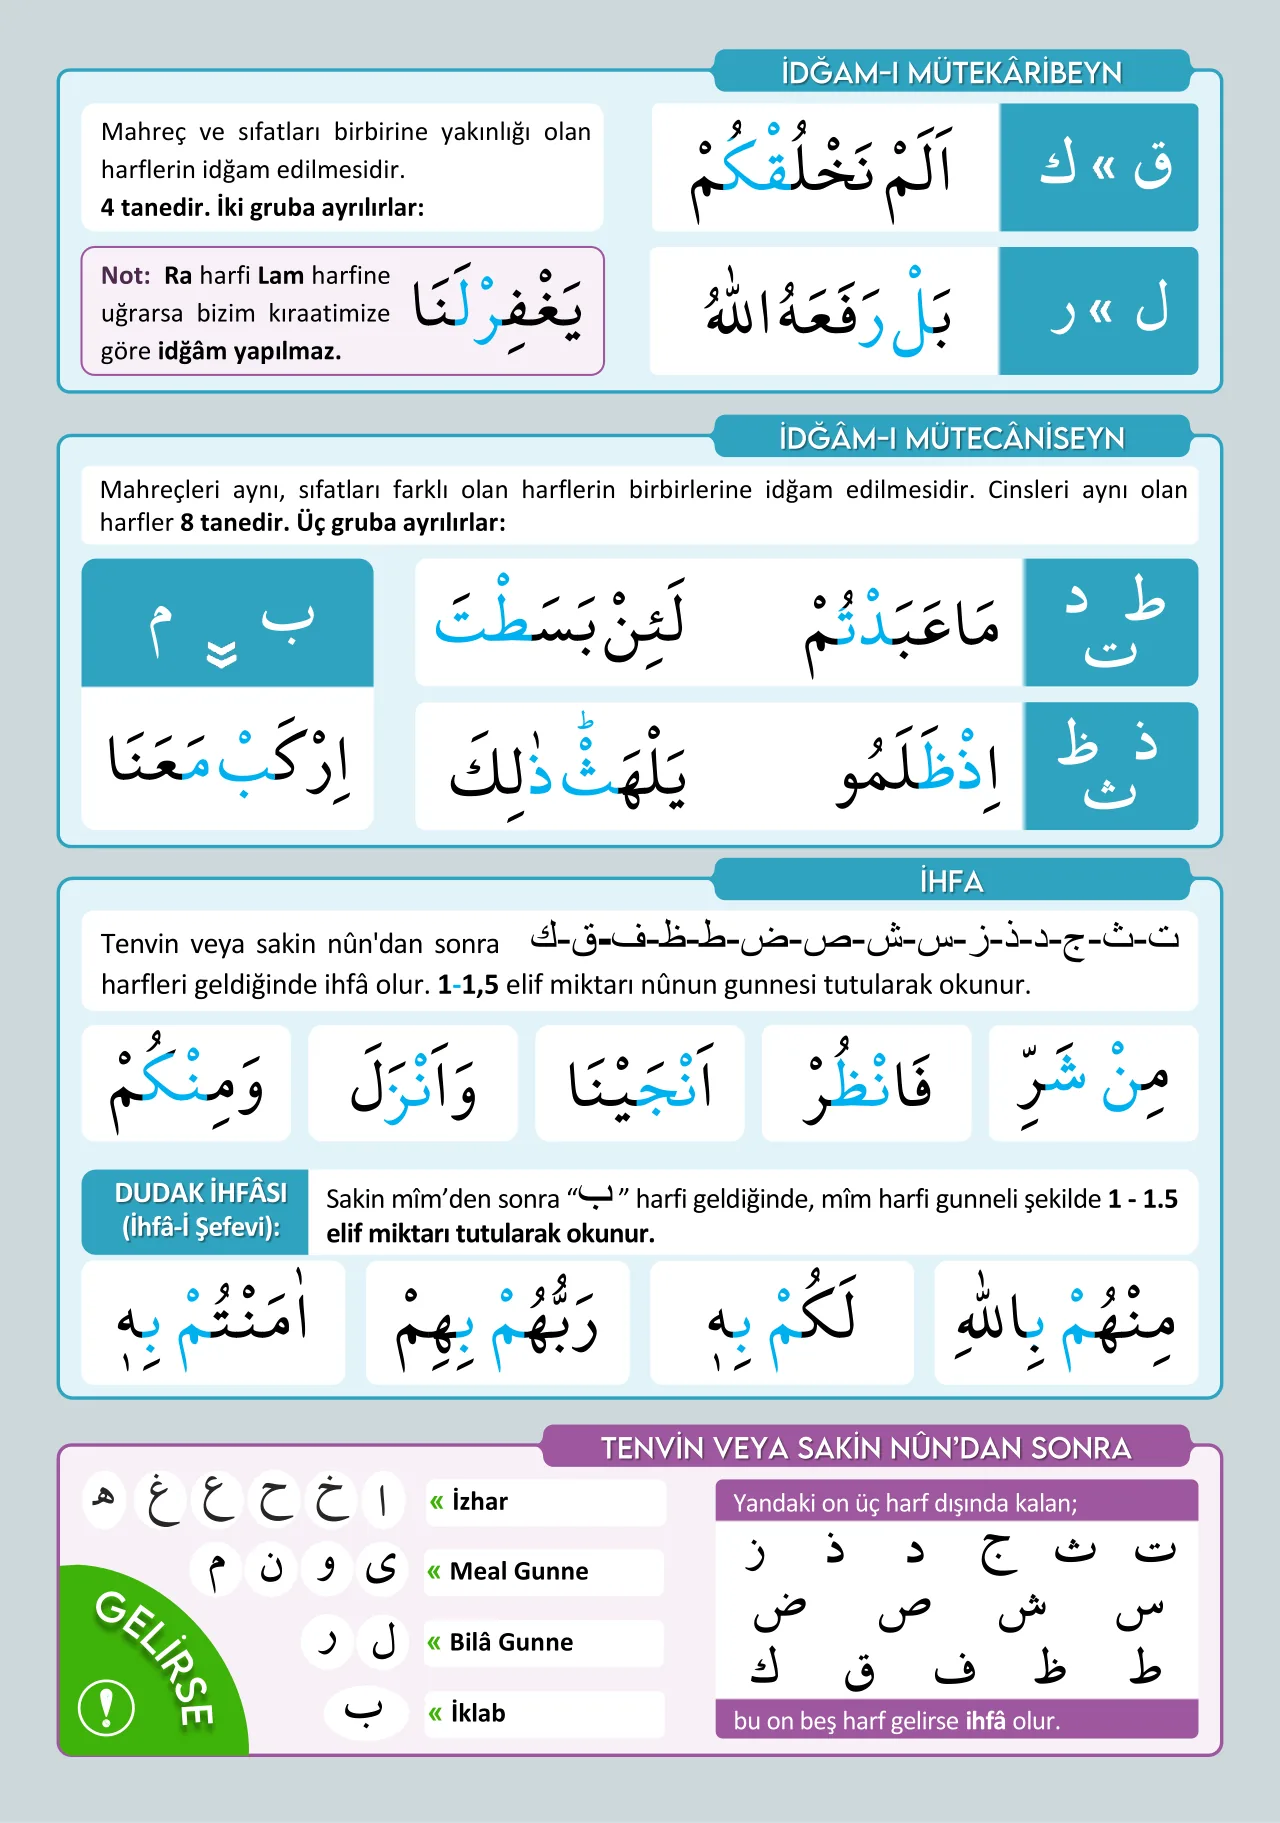 İDĞAM-I MÜTEKÂRİBEYN
Mahreç ve sıfatları birbirine yakınlığı olan
harflerin idğam edilmesidir.
4 tanedir. İki gruba ayrılırlar:
ق » ك
اَلَمْ نَخْلُقْكُمْ
Not: Ra harfi Lam harfine
uğrarsa bizim kıraatimize
göre idğâm yapılmaz.
يَغْفِرْلَنَا
ل » ر
بَلْ رَفَعَهُ اللّٰهُ
İDĞÂM-I MÜTECÂNİSEYN
Mahreçleri aynı, sıfatları farklı olan harflerin birbirlerine idğam edilmesidir. Cinsleri aynı olan
harfler 8 tanedir. Üç gruba ayrılırlar:
ط د ت
مَاعَبَدْتُمْ
لَئِنْ بَسَطْتَ
ب » م
ذ ظ ث
اِذْظَلَمُو
يَلْهَثْ ط ذٰلِكَ
اِرْكَبْ مَعَنَا
İHFA
Tenvin veya sakin nûn'dan sonra ت-ث-ج-د-ذ-ز-س-ش-ص-ض-ط-ظ-ف-ق-ك
harfleri geldiğinde ihfâ olur. 1-1,5 elif miktarı nûnun gunnesi tutularak okunur.
مِنْ شَرِّ
فَانْظُرْ
اَنْجَيْنَا
وَاَنْزَلَ
وَمِنْكُمْ
DUDAK İHFÂSI
(İhfâ-İ Şefevi):
Sakin mîm’den sonra “ب” harfi geldiğinde, mîm harfi gunneli şekilde 1 - 1.5
elif miktarı tutularak okunur.
مِنْهُمْ بِاللّٰهِ
لَكُمْ بِهٖ
رَبُّهُمْ بِهِمْ
اٰمَنْتُمْ بِهٖ
TENVİN VEYA SAKİN NÛN’DAN SONRA
ا خ ح ع غ ه
« İzhar
ى و ن م
« Meal Gunne
ل ر
« Bilâ Gunne
ب
« İklab
GELİRSE
!
Yandaki on üç harf dışında kalan;
ت ث ج د ذ ز
س ش ص ض
ط ظ ف ق ك
bu on beş harf gelirse ihfâ olur.